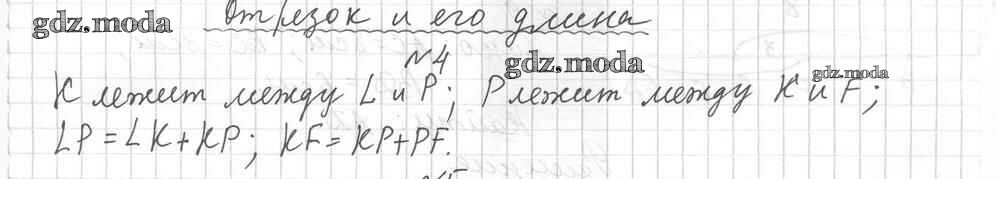 gdz.moda Отрезок и его длина
№4 gdz.moda
K лежит между L и P; P лежит между K и F; gdz.moda
LP = LK + KP; KF = KP + PF.